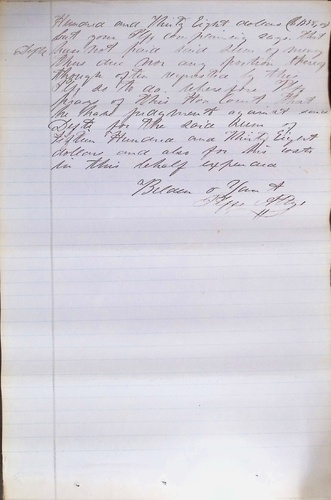 Hundred and Thirty Eight dollars
but your Plff complaining says that
Defts have not paid said sum of money
thus due nor any portion thereof
though often requested by the
Plff so to do wherefore Plff
prays of this Hon Court that
he have judgment against said
Defts for the said sum of
Fifteen Hundred and Thirty Eight
dollars and also for his costs
in this behalf expended
Belden &
Plffs Attys